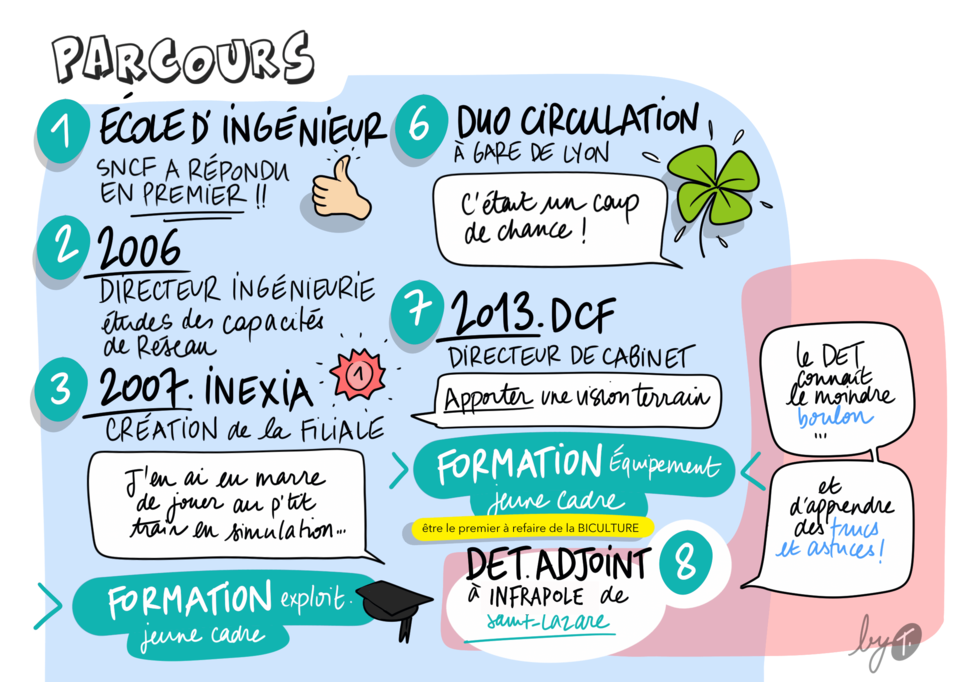 PARCOURS
1 ÉCOLE D'INGÉNIEUR
SNCF A RÉPONDU
EN PREMIER !!
2 2006
DIRECTEUR INGÉNIEURIE
études des capacités
de Réseau
3 2007. INEXIA
1
CRÉATION de la FILIALE
J'en ai eu marre
de jouer au p'tit
train en simulation...
FORMATION exploit.
jeune cadre
6 DUO CIRCULATION
À GARE DE LYON
C'était un coup
de chance !
7 2013. DCF
DIRECTEUR DE CABINET
Apporter une vision terrain
FORMATION Équipement
jeune cadre
être le premier à refaire de la BICULTURE
DET. ADJOINT 8
à INFRAPOLE de
Saint-Lazare
le DET
connait
le moindre
boulon
...
et
d'apprendre
des trucs
et astuces !
by T.